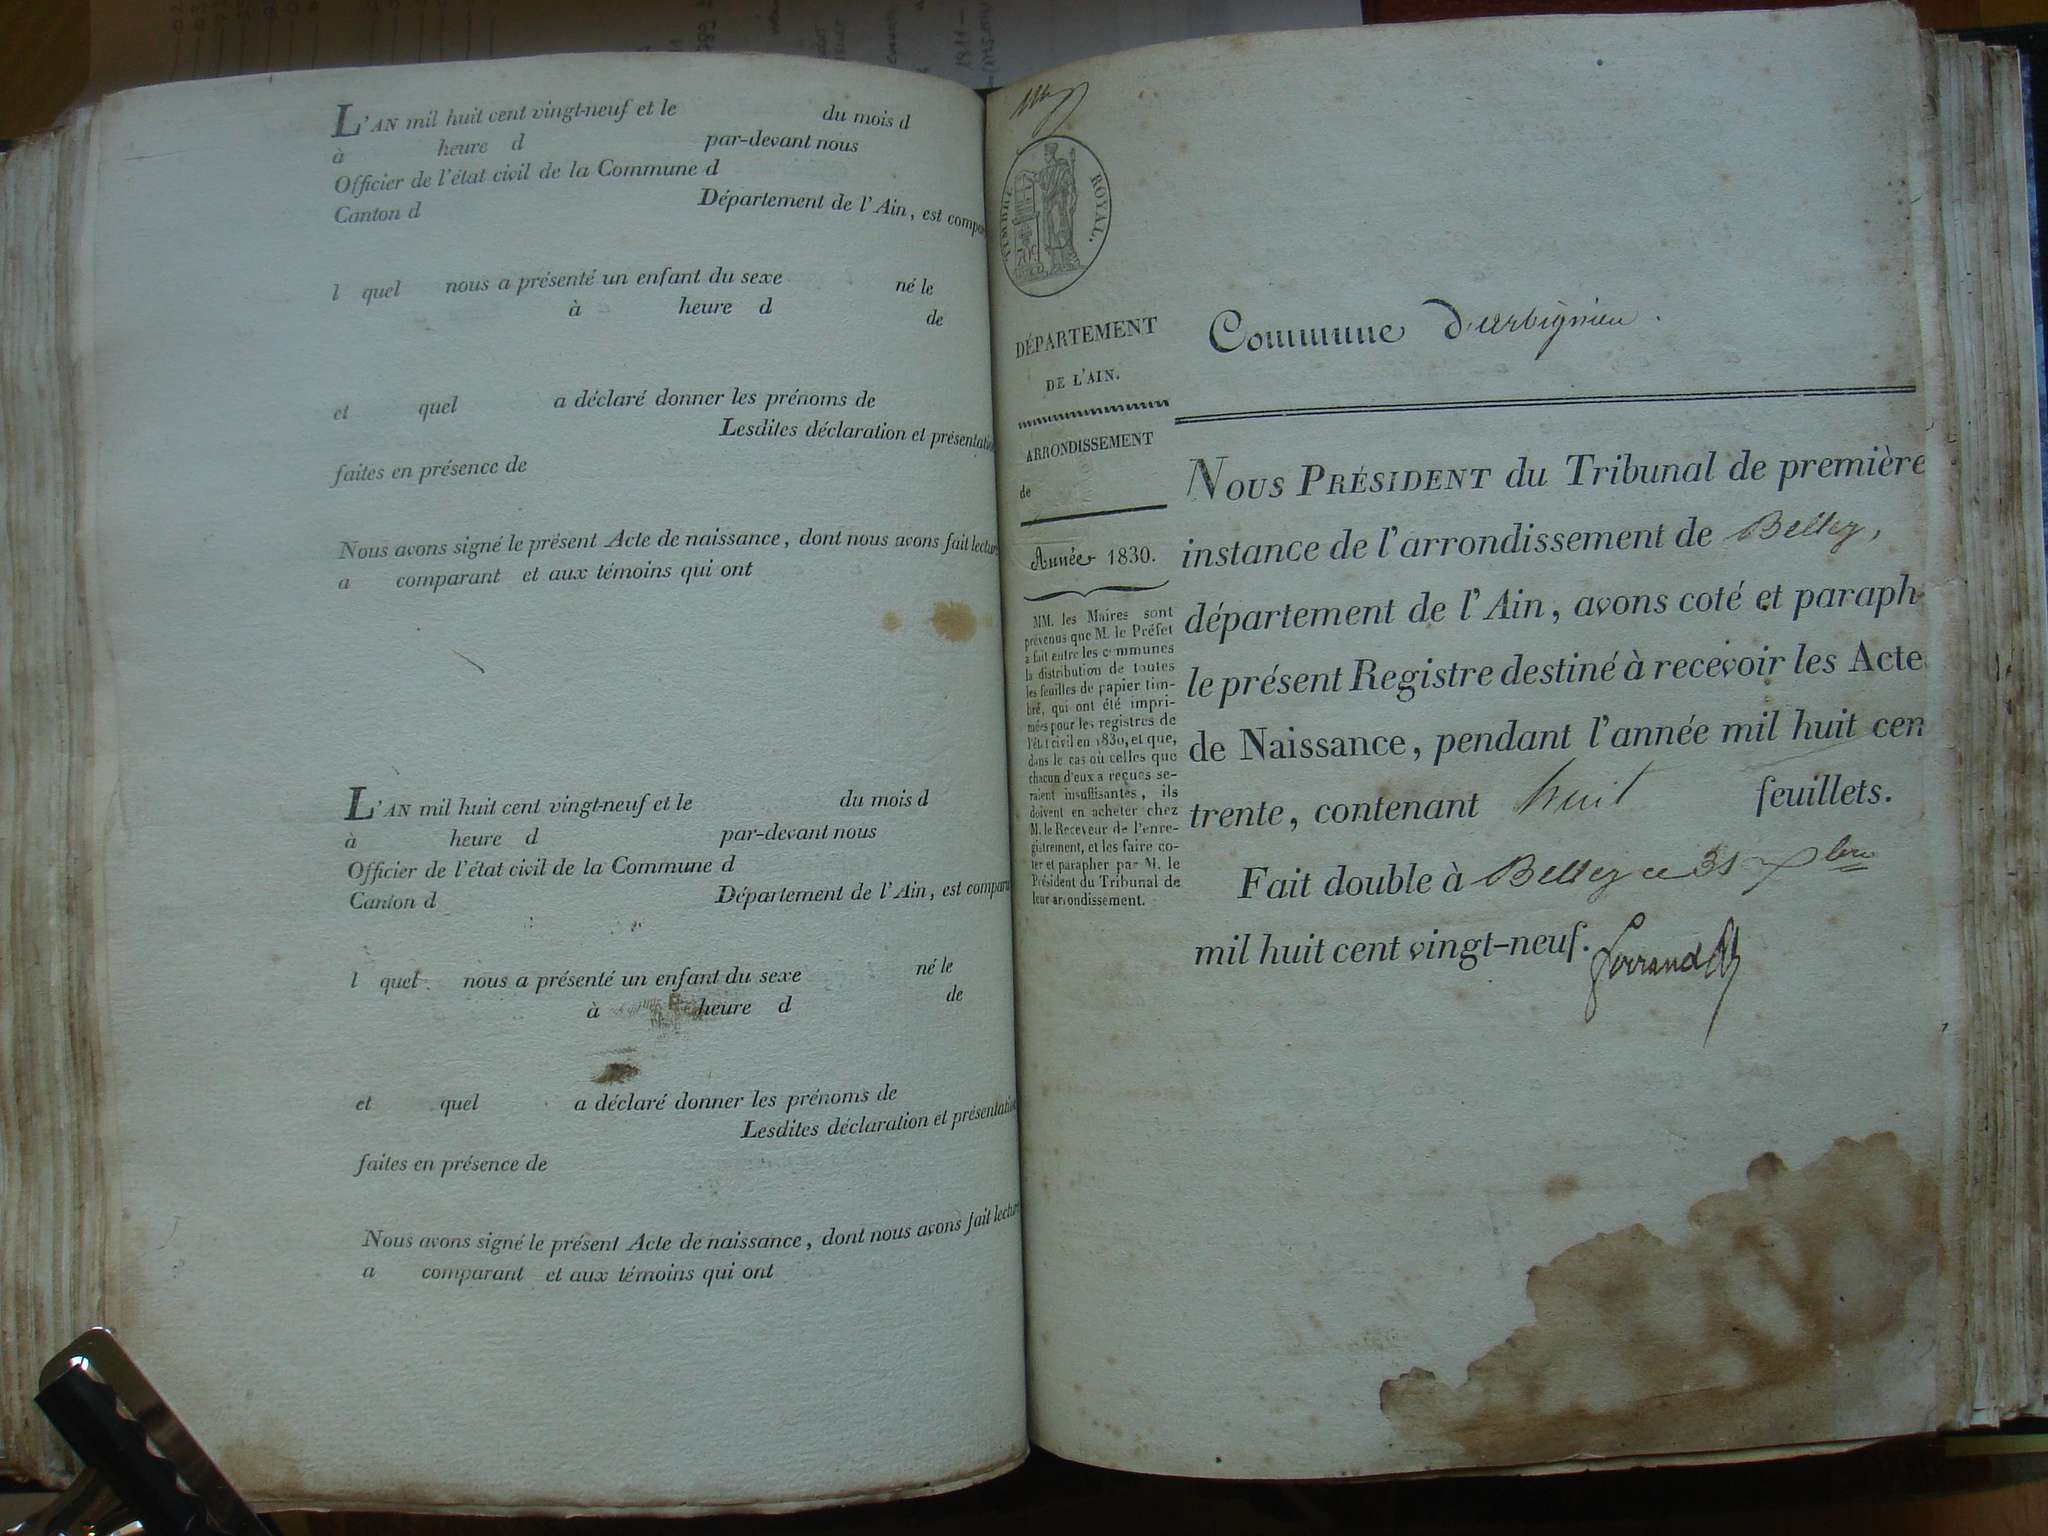 L'AN mil huit cent vingt-neuf et le du mois d
à heure d par-devant nous
Officier de l'état civil de la Commune d
Canton d Département de l'Ain, est compa
l quel nous a présenté un enfant du sexe né le
à heure d de
et quel a déclaré donner les prénoms de
Lesdites déclaration et présentatio
faites en présence de
Nous avons signé le présent Acte de naissance, dont nous avons fait lectur
a comparant et aux témoins qui ont
L'AN mil huit cent vingt-neuf et le du mois d
à heure d par-devant nous
Officier de l'état civil de la Commune d
Canton d Département de l'Ain, est compar
l quel nous a présenté un enfant du sexe né le
à heure d de
et quel a déclaré donner les prénoms de
Lesdites déclaration et présentatio
faites en présence de
Nous avons signé le présent Acte de naissance, dont nous avons fait lectur
a comparant et aux témoins qui ont
TIMBRE ROYAL.
DÉPARTEMENT
DE L'AIN.
ARRONDISSEMENT
de
Année 1830.
MM. les Maires sont
prévenus que M. le Préfet
a fait entre les communes
la distribution de toutes
les feuilles de papier tim-
bré, qui ont été impri-
mées pour les registres de
l'état civil en 1830, et que,
dans le cas où celles que
chacun d'eux a reçues se-
raient insuffisantes, ils
doivent en acheter chez
M. le Receveur de l'enre-
gistrement, et les faire co-
ter et parapher par M. le
Président du Tribunal de
leur arrondissement.
Commune d'arbignieu.
NOUS PRÉSIDENT du Tribunal de première
instance de l'arrondissement de Belley,
département de l'Ain, avons coté et paraph
le présent Registre destiné à recevoir les Acte
de Naissance, pendant l'année mil huit cen
trente, contenant huit feuillets.
Fait double à Belley ce 31 Xbre
mil huit cent vingt-neuf.